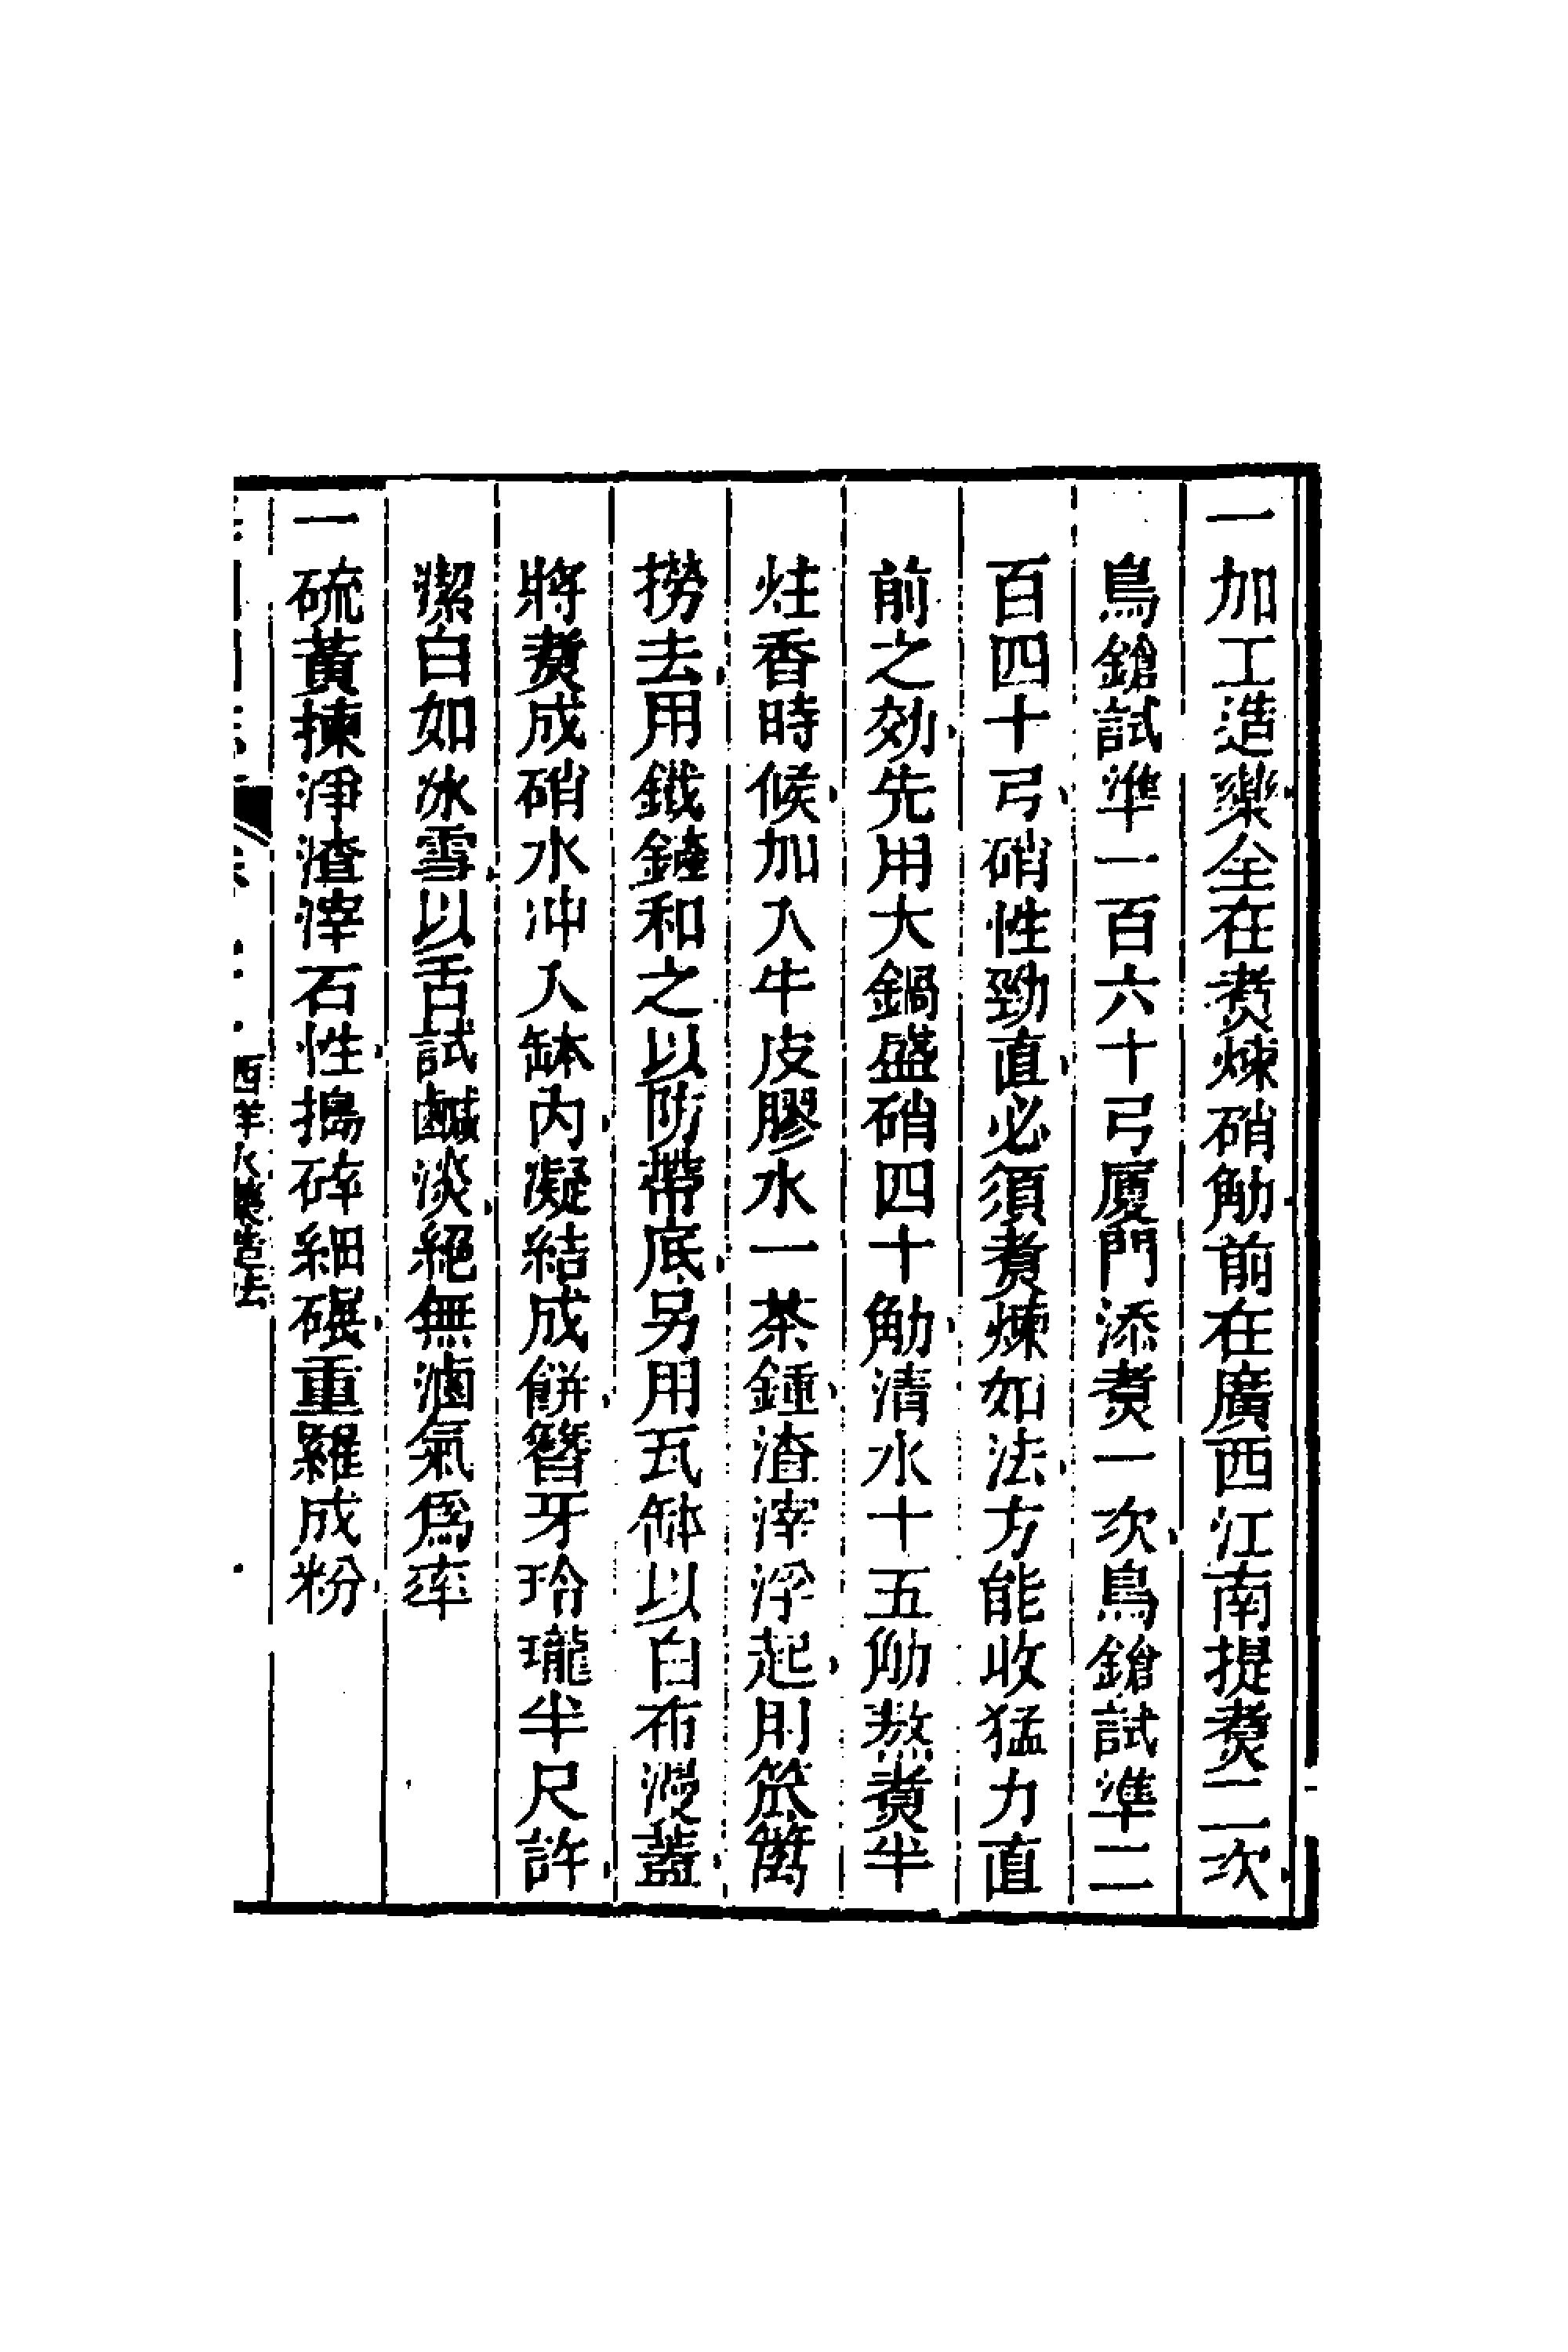 一加工造藥全在煑煉硝觔前在廣西江南提煑二次
鳥鎗試準一百六十弓厦門添煑一次鳥鎗試準二
百四十弓硝性勁直必須煑煉如法方能收猛力直
前之効先用大鍋盛硝四十觔清水十五觔熬煑半
炷香時候加入牛皮膠水一茶鍾渣滓浮起用笊籬
撈去用鐵鏟和之以防帶底另用瓦鉢以白布漫蓋
將煑成硝水冲入缽內凝結成餅簪牙玲瓏半尺許
潔白如冰雪以舌試鹹淡絕無滷氣爲率
一硫黃揀淨渣滓石性搗碎細碾重羅成粉
西洋火藥造法